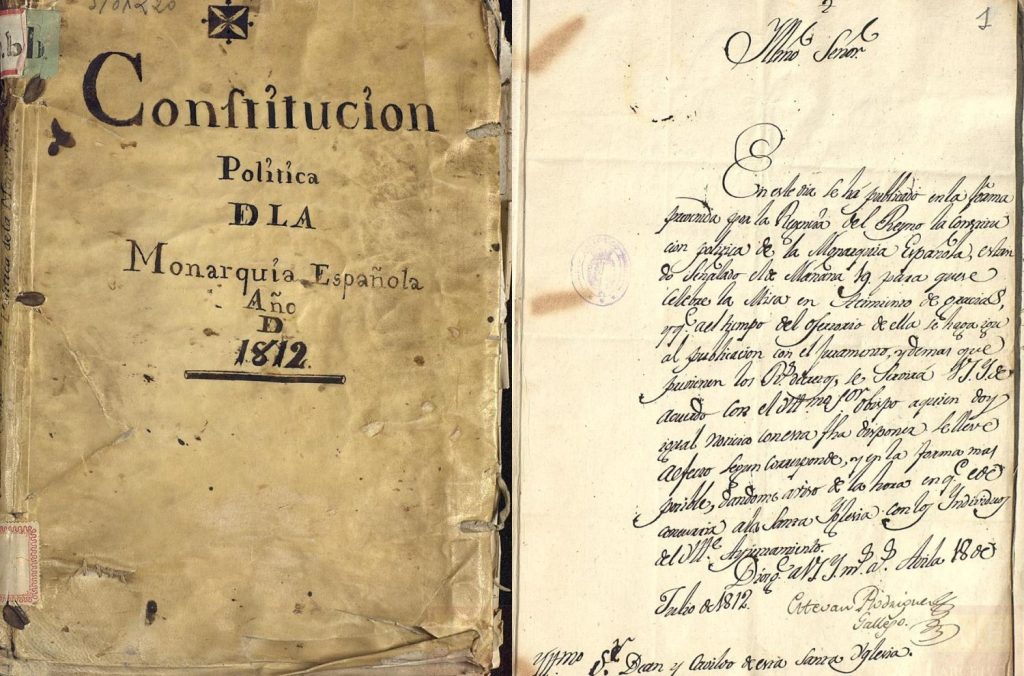 Constitucion
Politica
DLA
Monarquia Española
Año
D
1812
2
1
Yllmo Señor
En este dia se há publicado en la forma
prevenida por la Regencia del Reyno la Constitu
cion politica de la Monarquia Española, estan
do Señalado el de Mañana 19 para que se
Celebre la Misa en Acimiento de gracias,
y q.e al tiempo del ofertorio de ella se haga
al publicacion con el Juramento, y demas que
previenen los R.s decretos, se servirá V.S.Y. de
acuerdo con el Yllmo Sor Obispo a quien doy
igual noticia con esta fha disponer se lleve
a efecto segun corresponde, y en la forma mas
posible, dandome aviso de la hora en q.e de
concurrir a la Santa Yglesia con los Individuos
del Ylle Ayuntamiento.
Dios g.e a V.S.Y. m.s a.s Avila 18 de
Julio de 1812.
Estevan Rodriguez
Gallego.
Yllmo S.r Dean y Cavildo de esta Santa Yglesia.